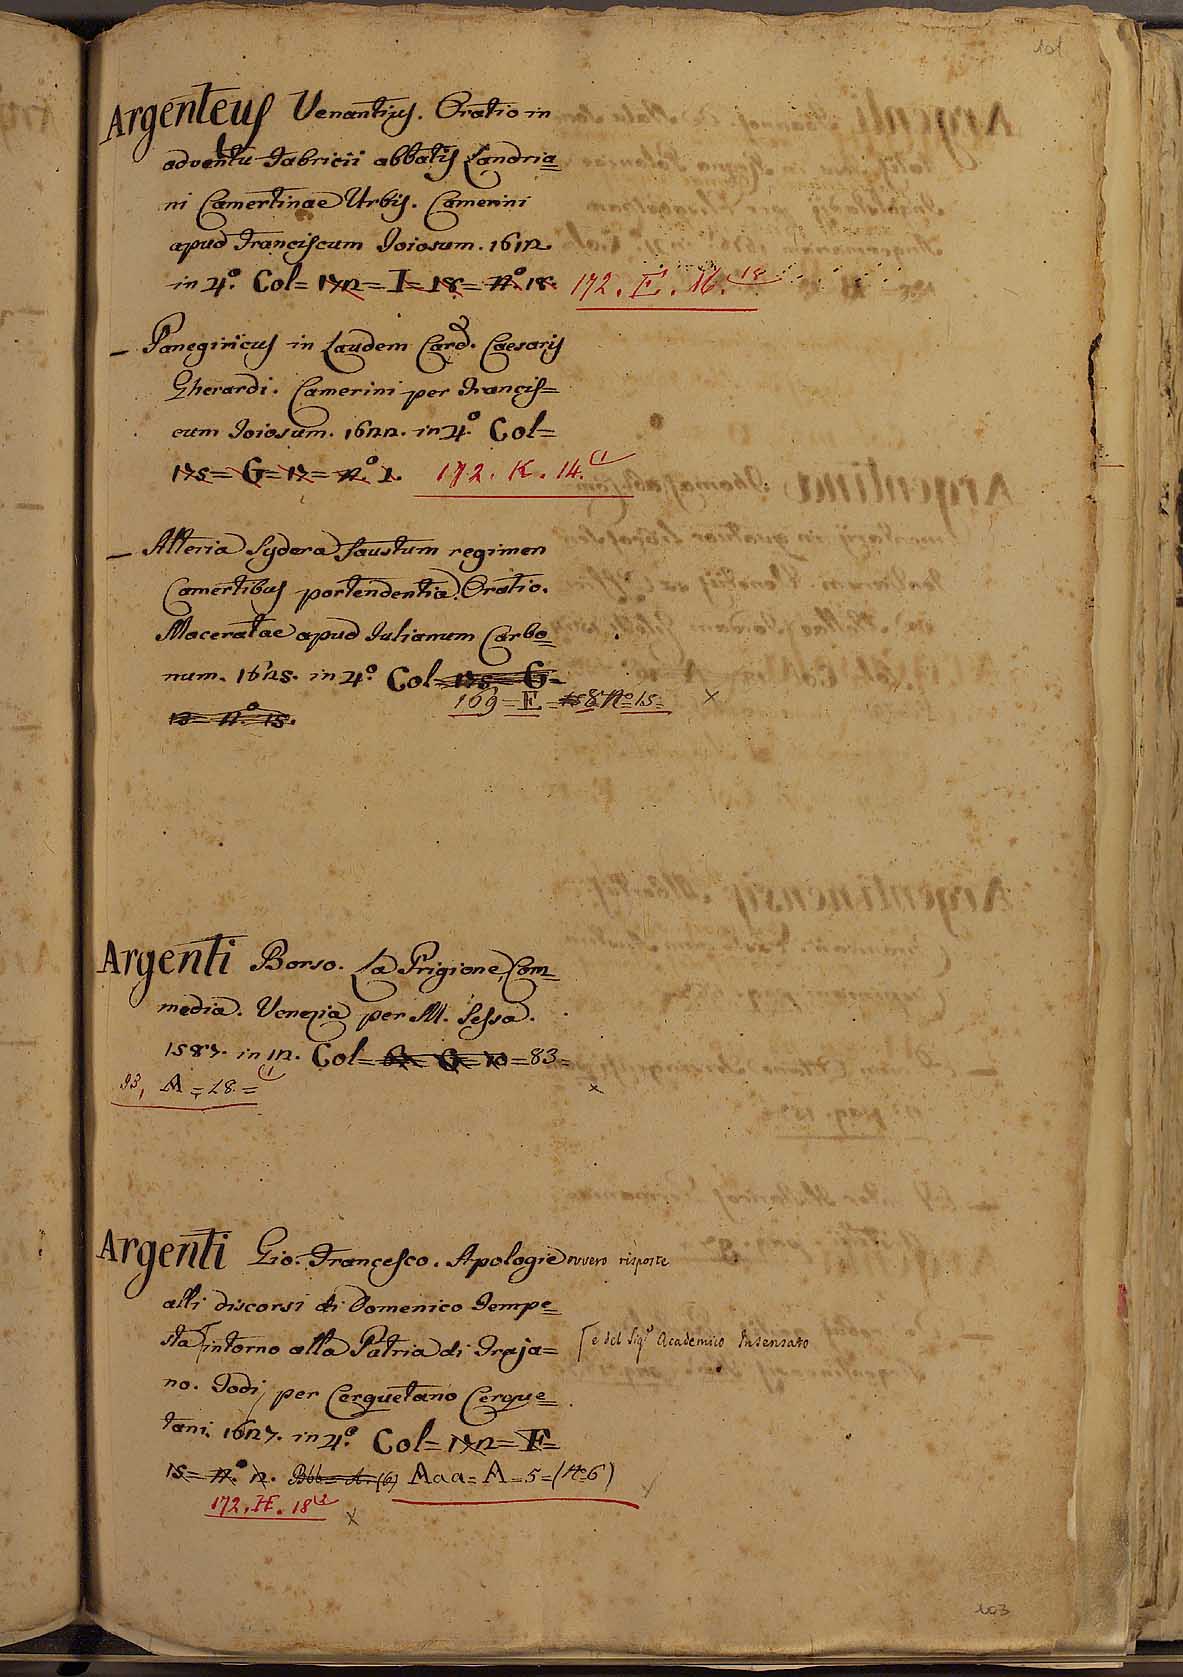 101
Argenteus Venantius. Oratio in
adventu Fabricii abbatis Landria=
ni Camertinae Urbis. Camerini
apud Franciscum Joiosum. 1612
in 4.º Col= 172= I= 18= n.º 18. 172. E. 16. 18
– Panegiricus in Laudem Card. Caesaris
Gherardi. Camerini per Francis=
cum Joiosum. 1622. in 4.º Col=
175= G= 17= n.º 1. 172. K. 14. (1
– Alteria Sydera faustum regimen
Camertibus portendentia. Oratio.
Maceratae apud Julianum Carbo=
num. 1625. in 4.º Col= 175= G=
169= E= 8. Nº 15=
13= n.º 15.
Argenti Borso. La Prigione, Com=
media. Venezia per M. Sessa.
1587. in 12. Col= G= 10= 83=
93, A= 28.= (1
Argenti Gio. Francesco. Apologie ovvero risposte
alli discorsi di Domenico Tempe=
sta intorno alla Patria di Traja= e del Sigr Academico Insensato
no. Todi, per Cerquetano Cerque=
tani. 1627. in 4.º Col= 172= F=
15= n.º 12. Bbb= A. (6) Aaa= A= 5= (Nº 6)
172. H. 18 (2
103